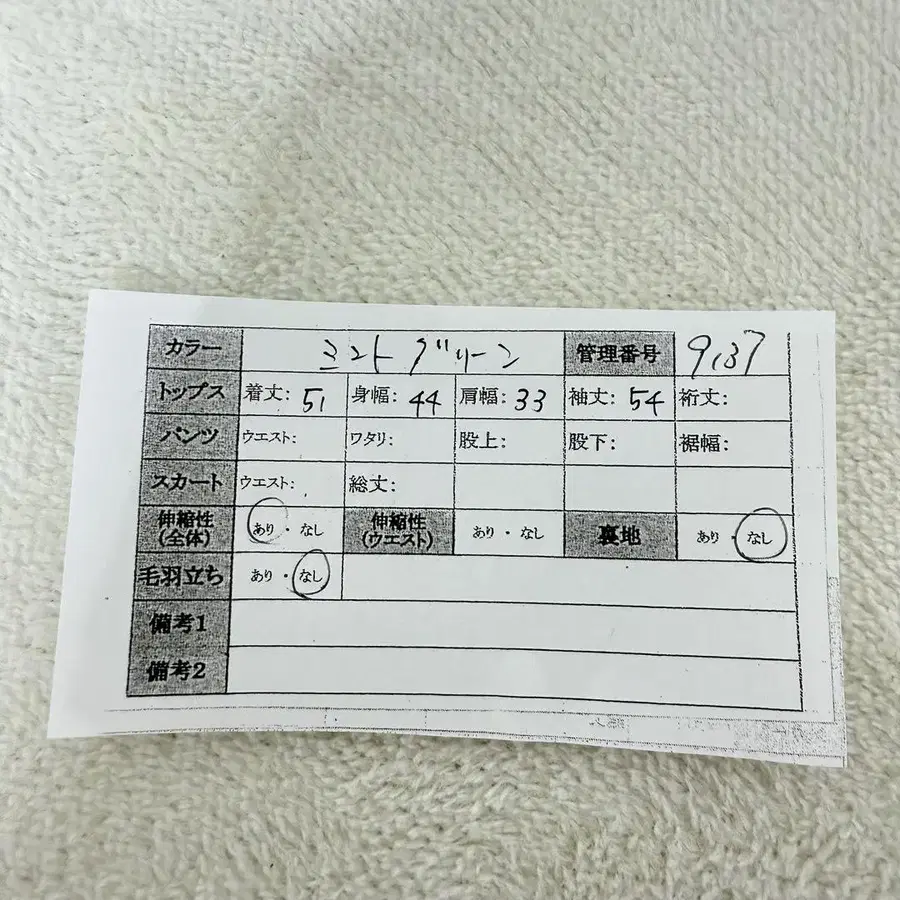 カラー ミントグリーン 管理番号 9137
トップス 着丈: 51 身幅: 44 肩幅: 33 袖丈: 54 裄丈:
パンツ ウエスト: ワタリ: 股上: 股下: 裾幅:
スカート ウエスト: 総丈:
伸縮性(全体) あり・なし 伸縮性(ウエスト) あり・なし 裏地 あり・なし
毛羽立ち あり・なし
備考1
備考2